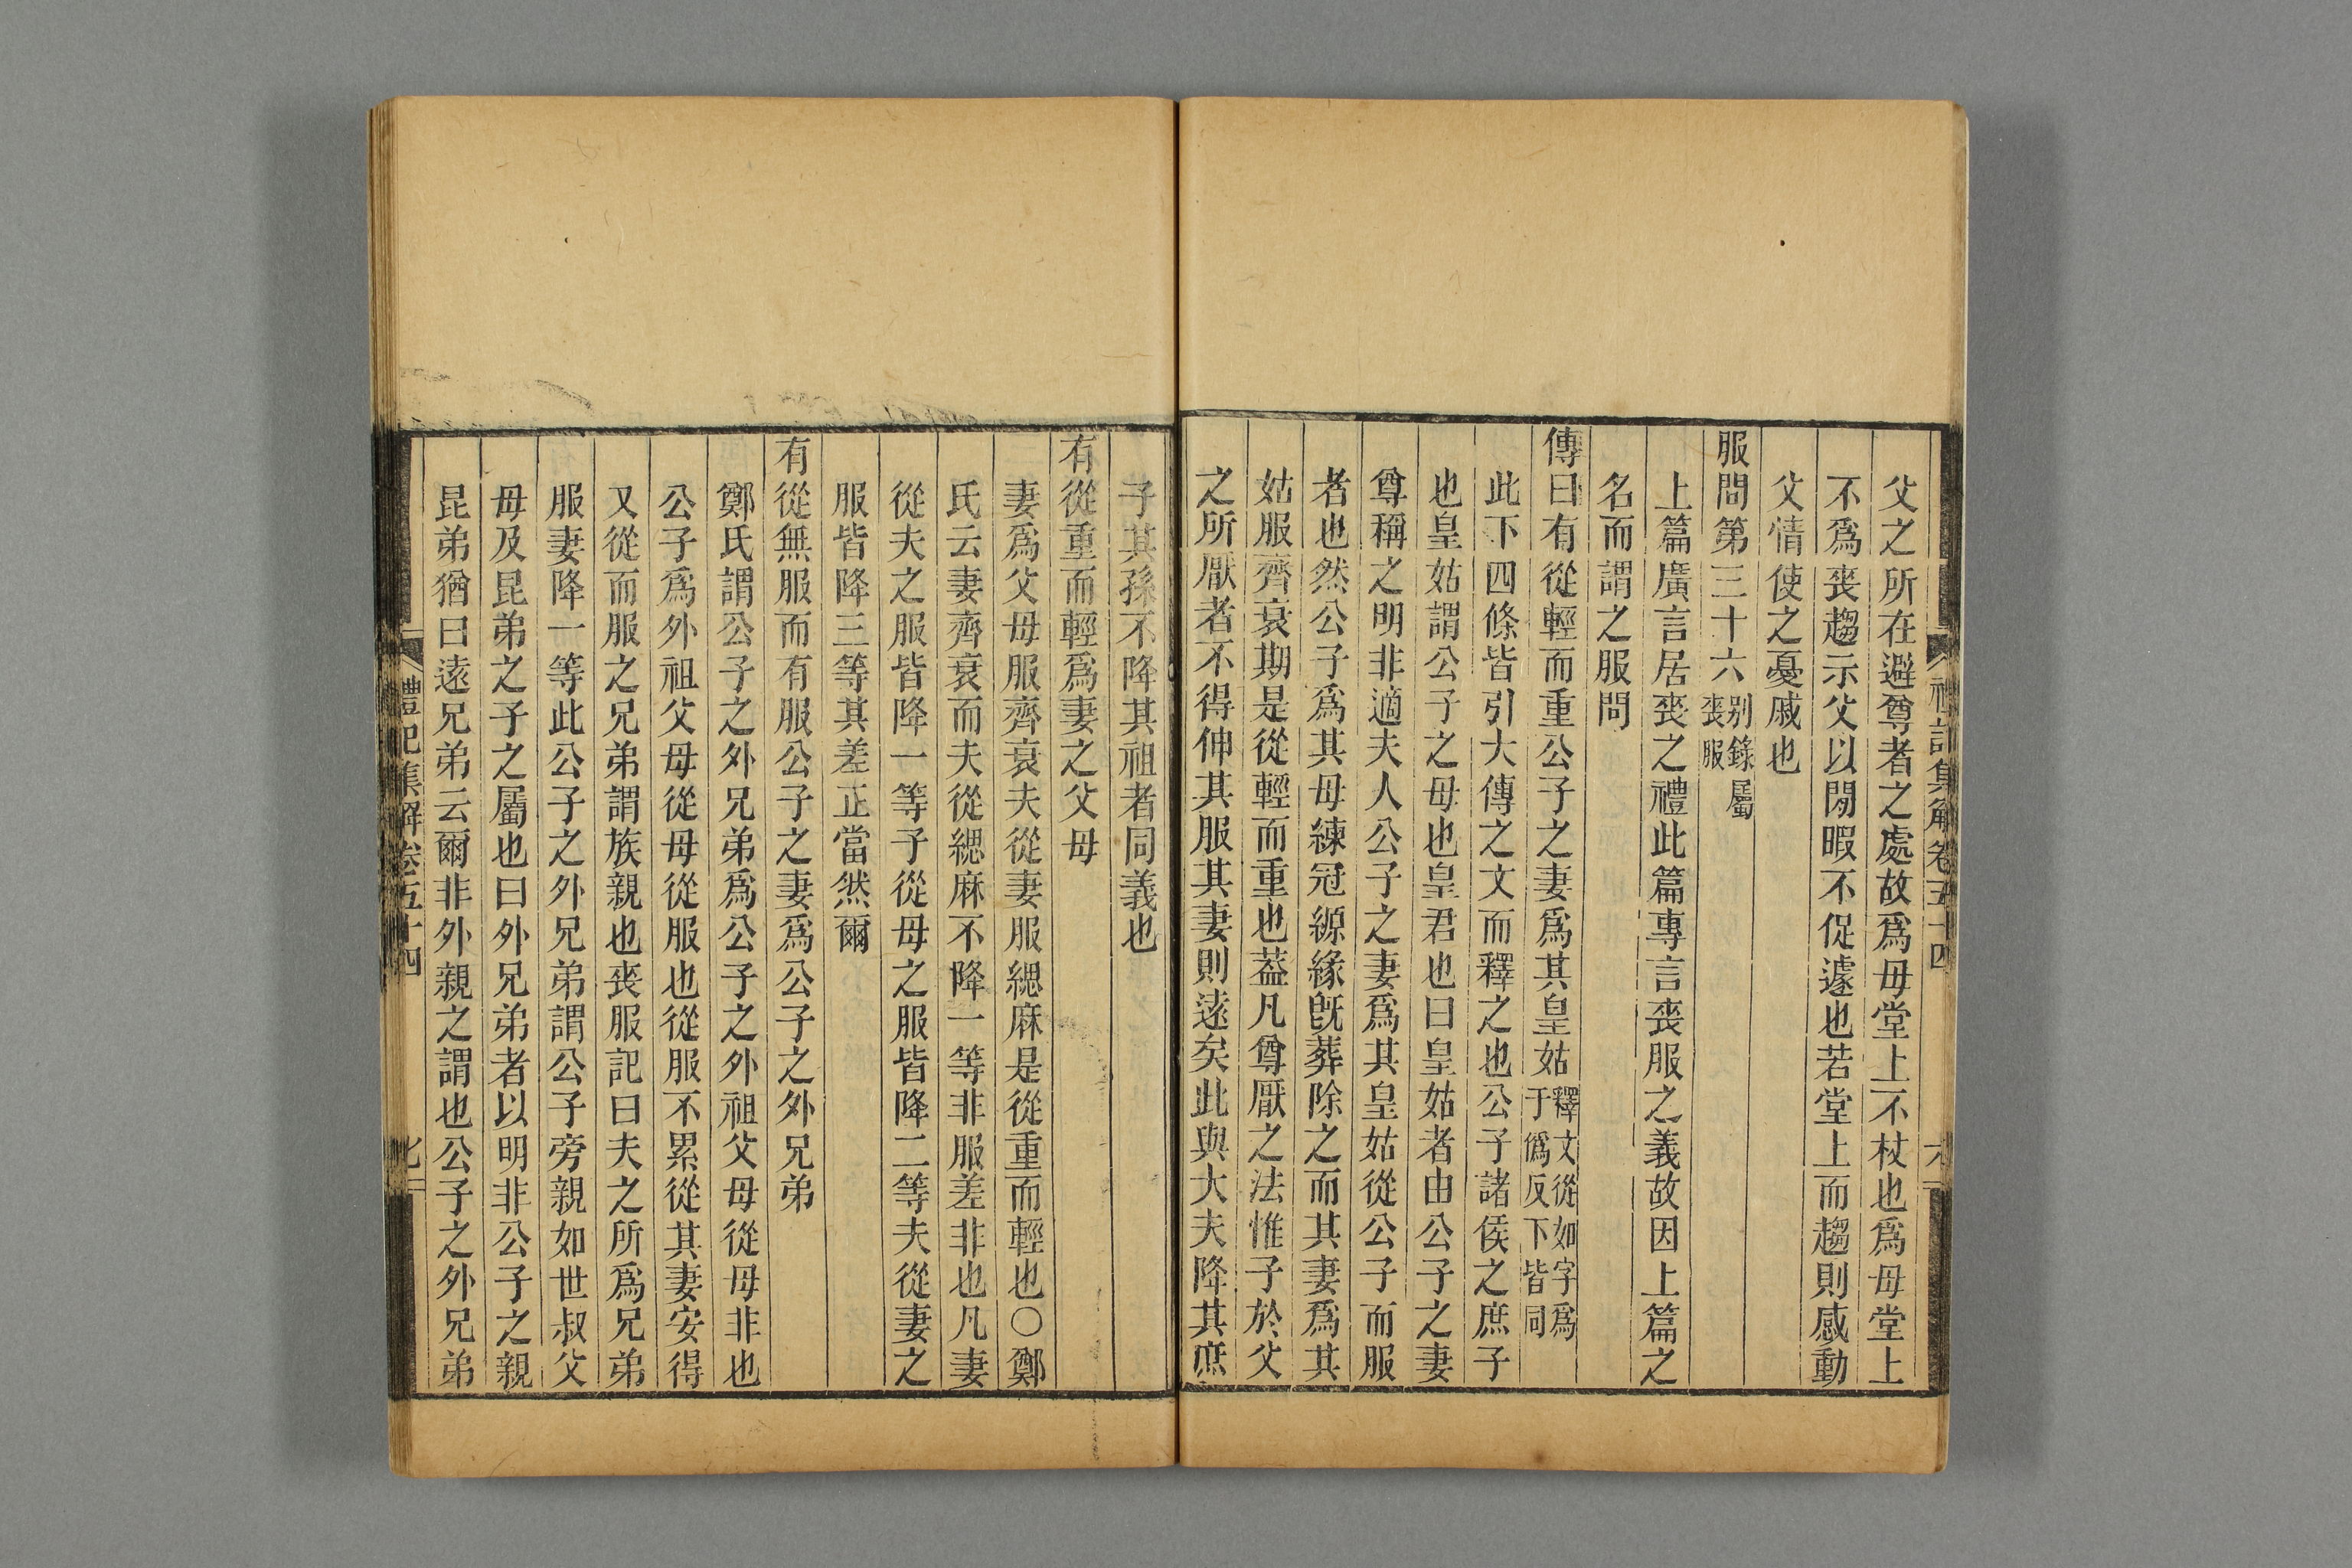 父之所在避尊者之處故爲毋堂上不杖也爲毋堂上
不爲喪趨示父以閒暇不促遽也若堂上而趨則感動
父情使之憂戚也
服問第三十六別錄屬喪服
上篇廣言居喪之禮此篇專言喪服之義故因上篇之
名而謂之服問
傳曰有從輕而重公子之妻爲其皇姑釋文從如字爲于僞反下皆同
此下四條皆引大傳之文而釋之也公子諸侯之庶子
也皇姑謂公子之母也皇君也曰皇姑者由公子之妻
尊稱之明非適夫人公子之妻爲其皇姑從公子而服
者也然公子爲其母練冠縓緣旣葬除之而其妻爲其
姑服齊衰期是從輕而重也蓋凡尊厭之法惟子於父
之所厭者不得伸其服其妻則遠矣此與大夫降其庶
子其孫不降其祖者同義也
有從重而輕爲妻之父母
妻爲父母服齊衰夫從妻服緦麻是從重而輕也○鄭
氏云妻齊衰而夫從緦麻不降一等非服差非也凡妻
從夫之服皆降一等子從母之服皆降二等夫從妻之
服皆降三等其差正當然爾
有從無服而有服公子之妻爲公子之外兄弟
鄭氏謂公子之外兄弟爲公子之外祖父母從母非也
公子爲外祖父母從母從服也從服不累從其妻安得
又從而服之兄弟謂族親也喪服記曰夫之所爲兄弟
服妻降一等此公子之外兄弟謂公子旁親如世叔父
母及昆弟之子之屬也曰外兄弟者以明非公子之親
昆弟猶曰遠兄弟云爾非外親之謂也公子之外兄弟
禮記集解卷五十四